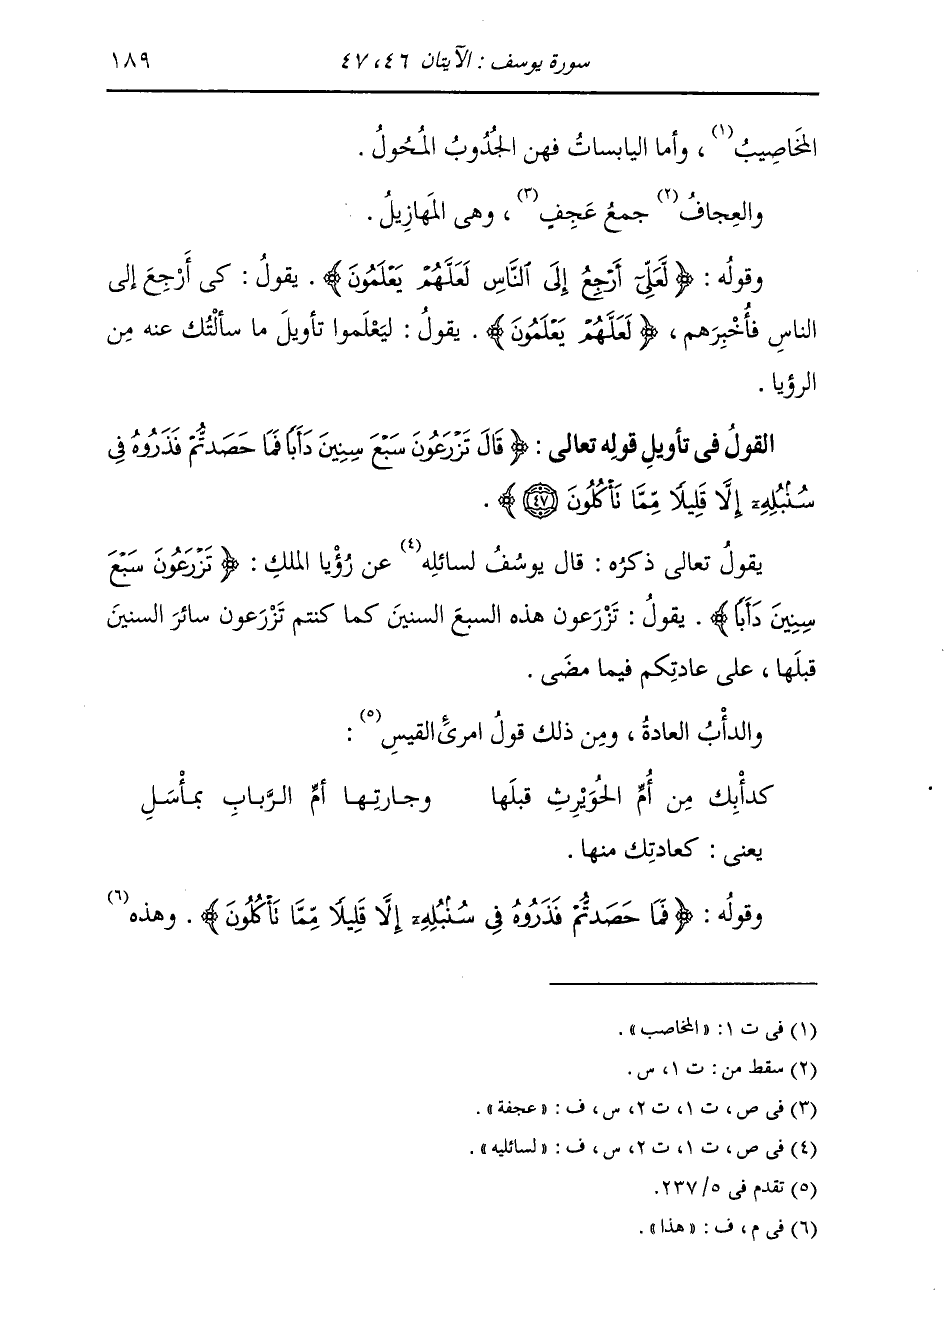 سورة يوسف : الآيتان ٤٦ ، ٤٧
١٨٩
المَخَاصِيبُ(١) ، وأما اليابساتُ فهن الجُدُوبُ المُحُولُ .
والعِجافُ(٢) جمعُ عَجِفٍ(٣) ، وهى المَهازِيلُ .
وقولُه : ﴿ لَّعَلِّىٓ أَرْجِعُ إِلَى ٱلنَّاسِ لَعَلَّهُمْ يَعْلَمُونَ ﴾ . يقولُ : كى أَرْجِعَ إلى
الناسِ فأُخْبِرَهم ، ﴿ لَعَلَّهُمْ يَعْلَمُونَ ﴾ . يقولُ : ليَعْلَموا تأويلَ ما سألْتُك عنه مِن
الرؤيا .
القولُ فى تأويلِ قولِه تعالى : ﴿ قَالَ تَزْرَعُونَ سَبْعَ سِنِينَ دَأَبًا فَمَا حَصَدتُّمْ فَذَرُوهُ فِى
سُنۢبُلِهِۦٓ إِلَّا قَلِيلًا مِّمَّا تَأْكُلُونَ ٤٧ ﴾ .
يقولُ تعالى ذكرُه : قال يوسُفُ لسائلِه(٤) عن رُؤْيا الملكِ : ﴿ تَزْرَعُونَ سَبْعَ
سِنِينَ دَأَبًا ﴾ . يقولُ : تَزْرَعون هذه السبعَ السنينَ كما كنتم تَزْرَعون سائرَ السنينَ
قبلَها ، على عادتِكم فيما مضَى .
والدأْبُ العادةُ ، ومِن ذلك قولُ امرئِ القيسِ(٥) :
كدأْبِك مِن أُمِّ الحُوَيْرِثِ قبلَها وجارتِها أمِّ الرَّبابِ بمأْسَلِ
يعنى : كعادتِك منها .
وقولُه : ﴿ فَمَا حَصَدتُّمْ فَذَرُوهُ فِى سُنۢبُلِهِۦٓ إِلَّا قَلِيلًا مِّمَّا تَأْكُلُونَ ﴾ . وهذه(٦)
(١) فى ت ١: « المخاصب » .
(٢) سقط من : ت ١، س .
(٣) فى ص ، ت ١، ت ٢، س ، ف : « عجفة » .
(٤) فى ص ، ت ١، ت ٢، س ، ف : « لسائليه » .
(٥) تقدم فى ٥/ ٢٣٧.
(٦) فى م ، ف : « هذا » .